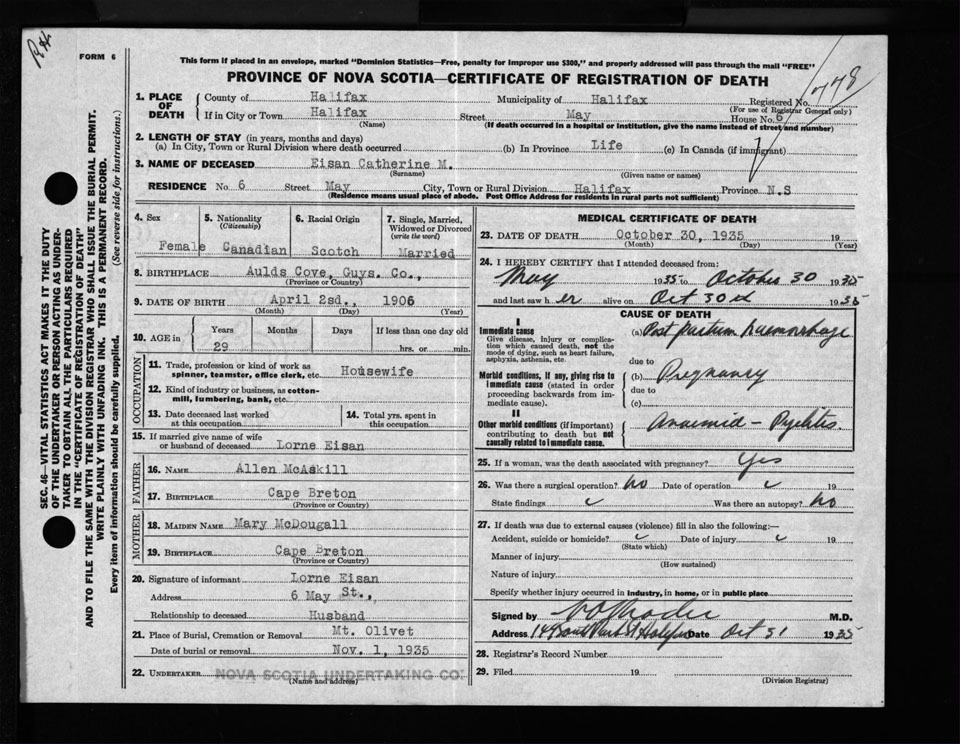 R.H.
FORM 6
This form if placed in an envelope, marked "Dominion Statistics—Free, penalty for improper use $300," and properly addressed will pass through the mail "FREE"
PROVINCE OF NOVA SCOTIA—CERTIFICATE OF REGISTRATION OF DEATH
SEC. 46—VITAL STATISTICS ACT MAKES IT THE DUTY
OF THE UNDERTAKER OR PERSON ACTING AS UNDER-
TAKER TO OBTAIN ALL THE PARTICULARS REQUIRED
IN THE "CERTIFICATE OF REGISTRATION OF DEATH"
AND TO FILE THE SAME WITH THE DIVISION REGISTRAR WHO SHALL ISSUE THE BURIAL PERMIT.
WRITE PLAINLY WITH UNFADING INK. THIS IS A PERMANENT RECORD.
Every item of information should be carefully supplied. (See reverse side for instructions.)
1. PLACE OF DEATH County of Halifax Municipality of Halifax Registered No. 778
(For use of Registrar General only)
If in City or Town Halifax Street May House No. 6
(Name) (If death occurred in a hospital or institution, give the name instead of street and number)
2. LENGTH OF STAY (in years, months and days)
(a) In City, Town or Rural Division where death occurred (b) In Province Life (c) In Canada (if immigrant)
3. NAME OF DECEASED Eisan Catherine M.
(Surname) (Given name or names)
RESIDENCE No. 6 Street May City, Town or Rural Division Halifax Province N.S
(Residence means usual place of abode. Post Office Address for residents in rural parts not sufficient)
4. Sex 5. Nationality (Citizenship) 6. Racial Origin 7. Single, Married, Widowed or Divorced (write the word)
Female Canadian Scotch Married
8. BIRTHPLACE Aulds Cove, Guys. Co.,
(Province or Country)
9. DATE OF BIRTH April 2sd., 1906
(Month) (Day) (Year)
10. AGE in Years Months Days If less than one day old
29 hrs. or min.
OCCUPATION
11. Trade, profession or kind of work as spinner, teamster, office clerk, etc. Housewife
12. Kind of industry or business, as cotton-mill, lumbering, bank, etc.
13. Date deceased last worked at this occupation 14. Total yrs. spent in this occupation
15. If married give name of wife or husband of deceased Lorne Eisan
FATHER
16. NAME Allen McAskill
17. BIRTHPLACE Cape Breton
(Province or Country)
MOTHER
18. MAIDEN NAME Mary McDougall
19. BIRTHPLACE Cape Breton
(Province or Country)
20. Signature of informant Lorne Eisan
Address 6 May St.,
Relationship to deceased Husband
21. Place of Burial, Cremation or Removal Mt. Olivet
Date of burial or removal Nov. 1, 1935
22. UNDERTAKER NOVA SCOTIA UNDERTAKING CO.
(Name and address)
MEDICAL CERTIFICATE OF DEATH
23. DATE OF DEATH October 30, 1935 19
(Month) (Day) (Year)
24. I HEREBY CERTIFY that I attended deceased from:
May 1935 to October 30 1935
and last saw her alive on Oct 30th 1935
CAUSE OF DEATH
I
Immediate cause (a) Post Partum haemorrhage
Give disease, injury or complication which caused death, not the mode of dying, such as heart failure, asphyxia, asthenia, etc.
due to
Morbid conditions, if any, giving rise to immediate cause (stated in order proceeding backwards from immediate cause).
(b) Pregnancy
due to
(c)
II
Other morbid conditions (if important) contributing to death but not causally related to immediate cause.
Anaemia – Pyelitis.
25. If a woman, was the death associated with pregnancy? Yes
26. Was there a surgical operation? No Date of operation 19
State findings Was there an autopsy? No
27. If death was due to external causes (violence) fill in also the following:—
Accident, suicide or homicide? Date of injury 19
(State which)
Manner of injury
(How sustained)
Nature of injury
Specify whether injury occurred in industry, in home, or in public place
Signed by M.D.
Address South Park St Halifax Date Oct 31 1935
28. Registrar's Record Number
29. Filed 19
(Division Registrar)